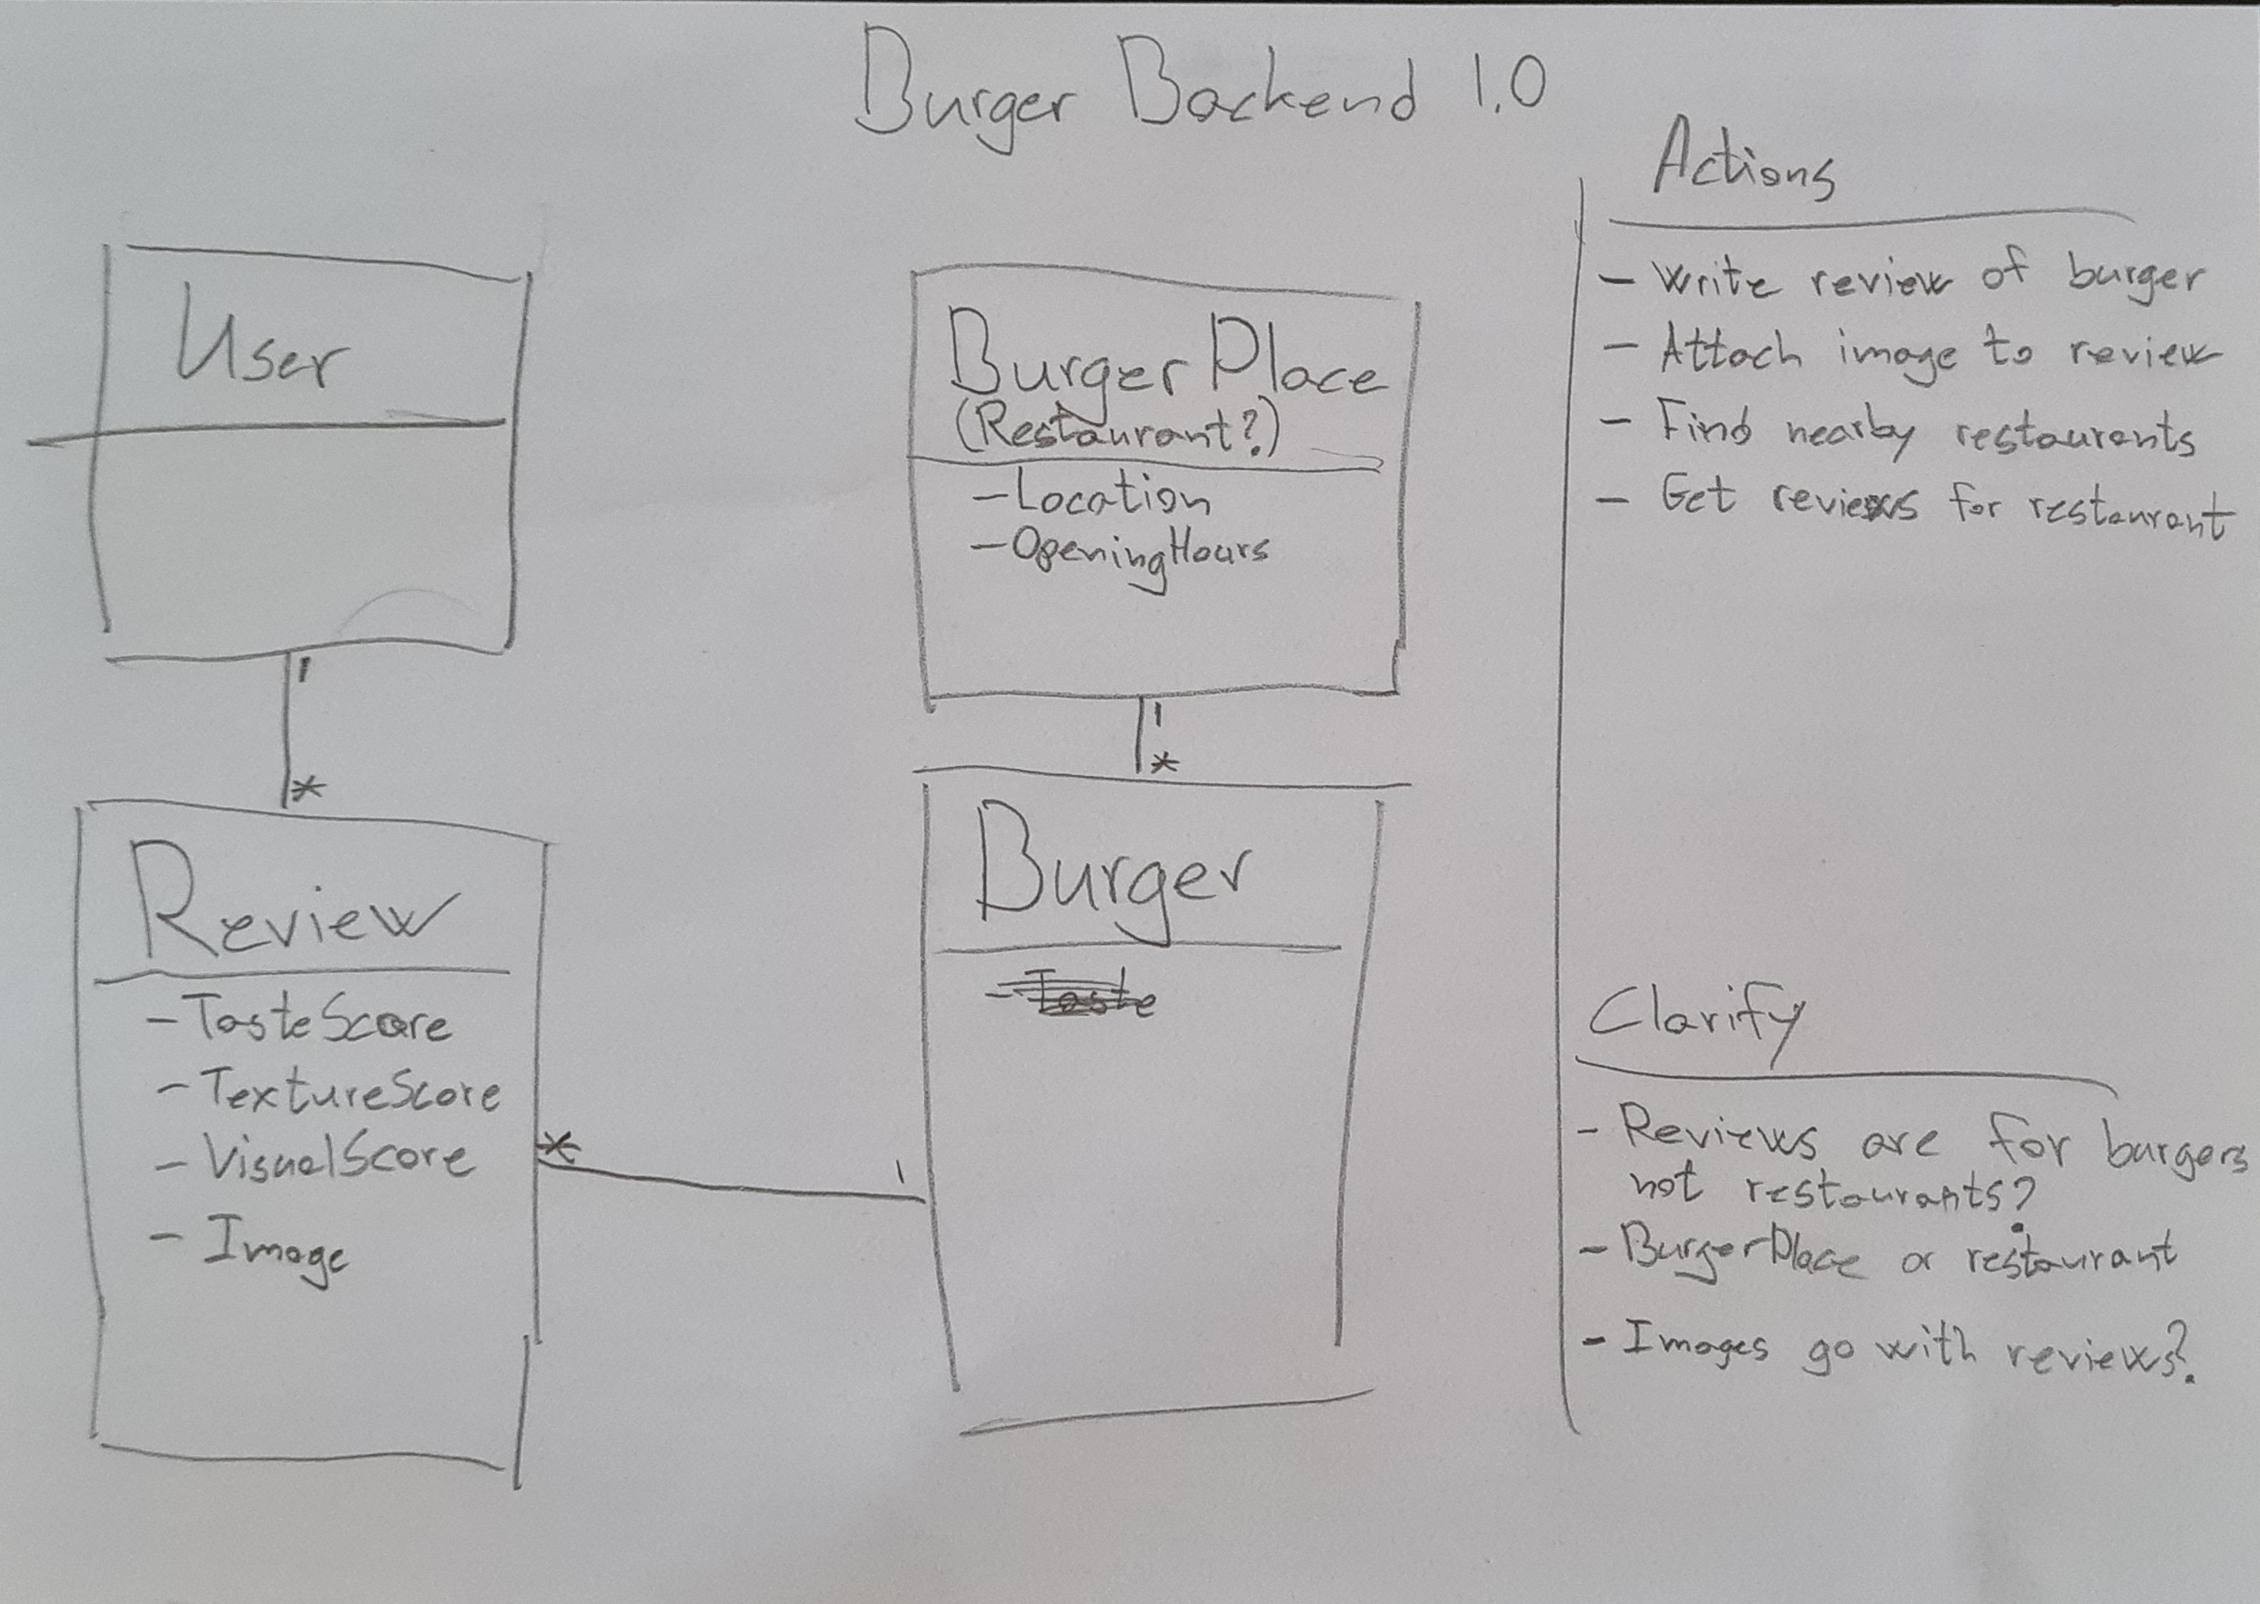 Burger Backend 1.0
User
1
*
Review
- TasteScore
- TextureScore
- VisualScore
- Image
*
1
Burger Place
(Restaurant?)
- Location
- OpeningHours
1
*
Burger
- Taste
Actions
- Write review of burger
- Attach image to review
- Find nearby restaurants
- Get reviews for restaurant
Clarify
- Reviews are for burgers
not restaurants?
- BurgerPlace or restaurant
- Images go with reviews?